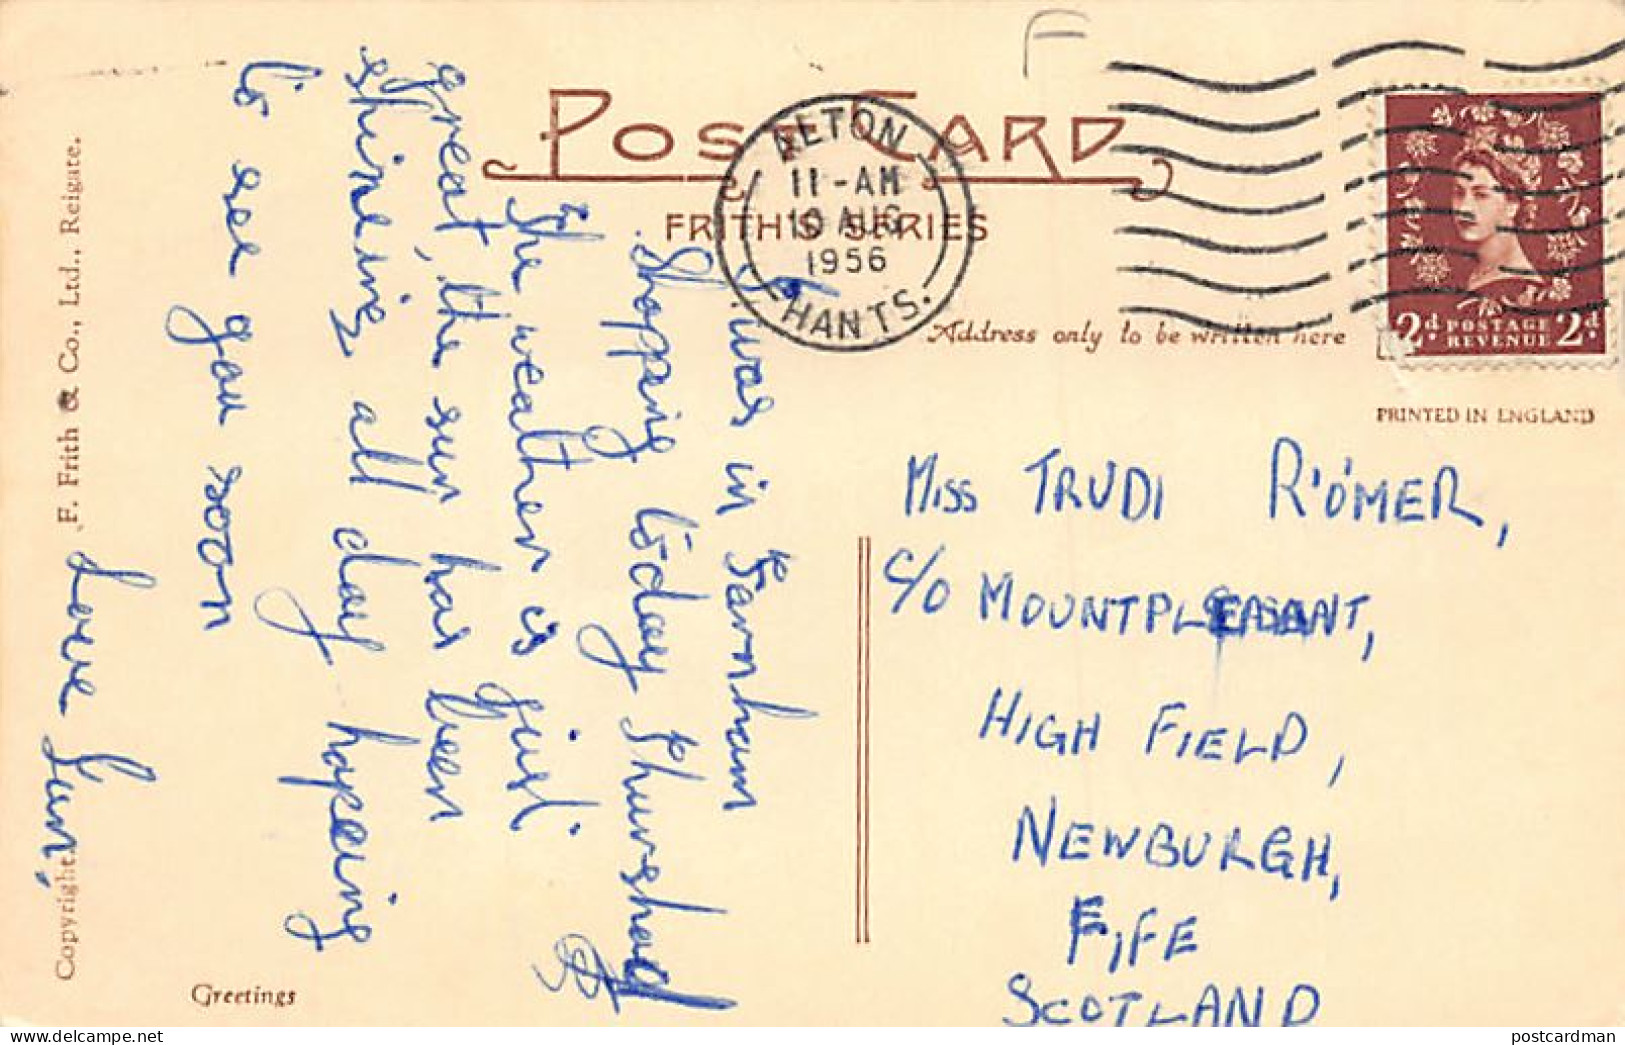 POST CARD
FRITH'S SERIES
Address only to be written here
PRINTED IN ENGLAND
ALTON
11-AM
10 AUG
1956
HANTS.
2d POSTAGE 2d.
REVENUE
F
I was in Farnham
Shopping today Thurshad
The weather is just
great, the sun has been
shineing all day hopeing
to see you soon
Love
Miss TRUDI RÖMER,
C/O MOUNTPLEASANT,
HIGH FIELD,
NEWBURGH,
FIFE
SCOTLAND
Copyright. F. Frith & Co., Ltd., Reigate.
Greetings
postcardman